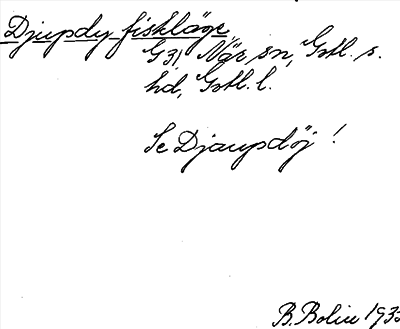 Djupdy, fiskläge,
G 31, När sn, Gotl. s.
hd, Gotl. l.
Se Djaupdöj!
B. Bolin 193